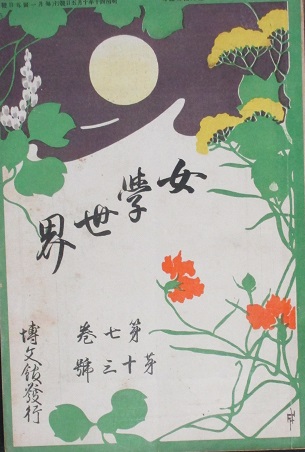 女學世界
第七卷
第十三號
博文館發行